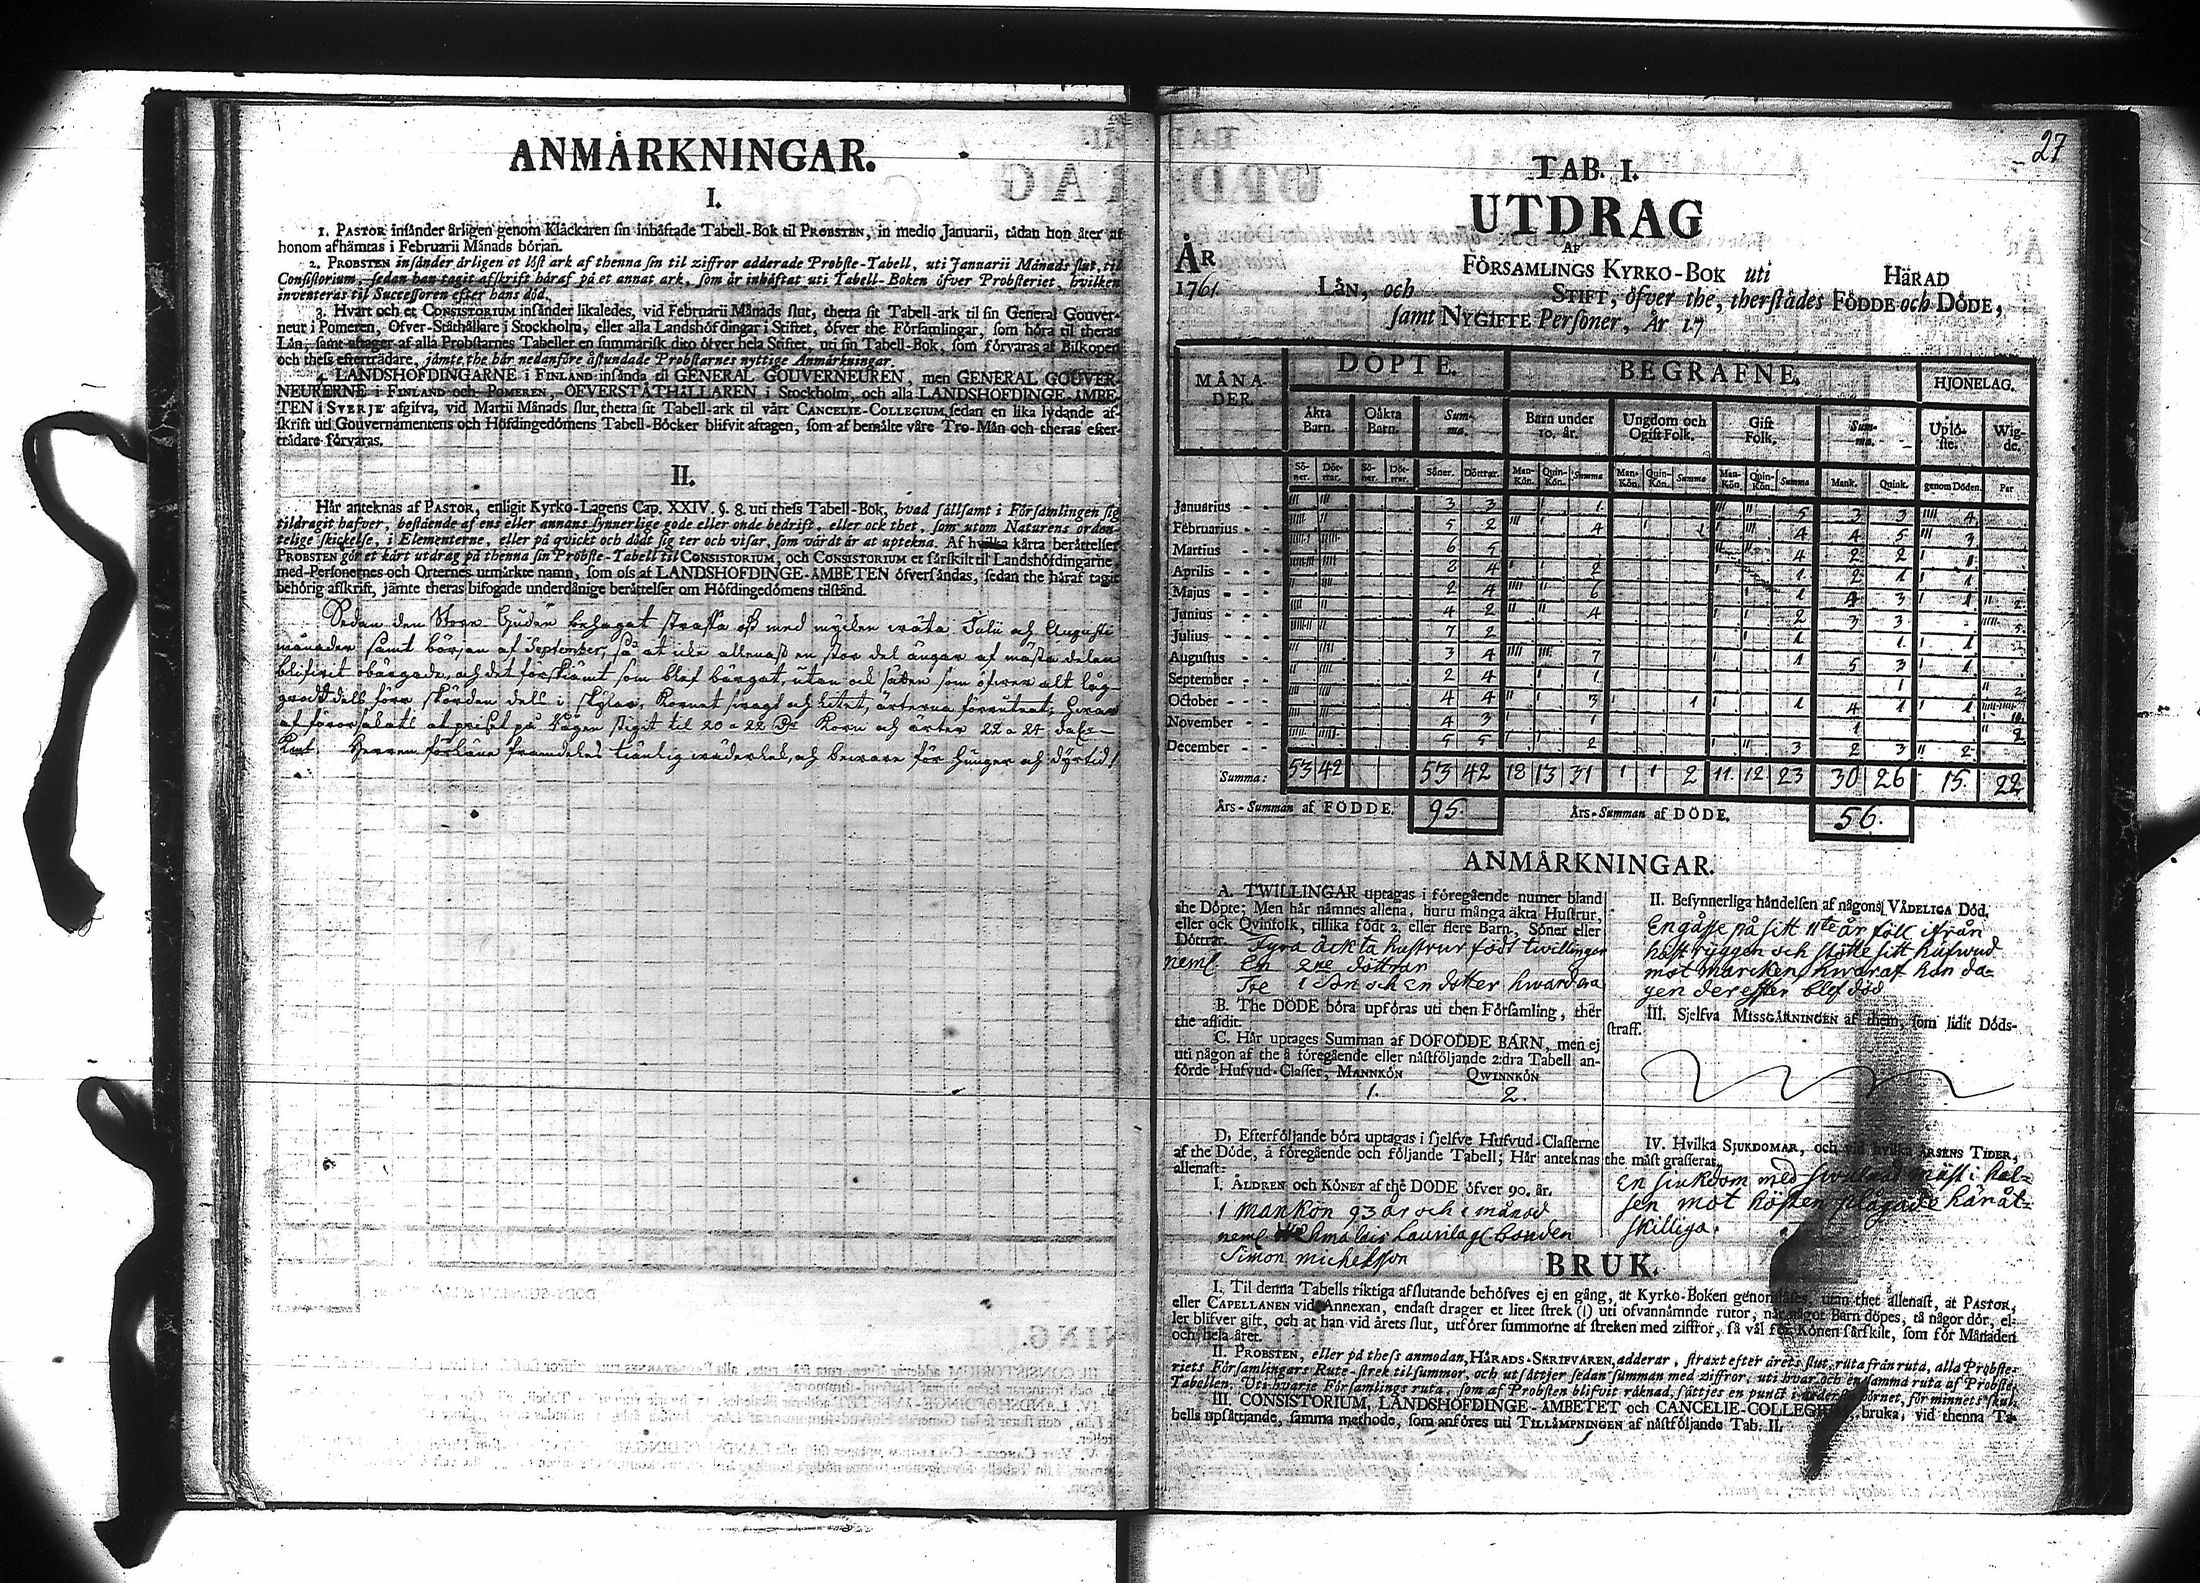 ANMÄRKNINGAR.
I.
1. PASTOR insänder årligen genom Klåckaren sin inhäftade Tabell-Bok til PROBSTEN, in medio Januarii, tådan hon åter af
honom afhämtas i Februarii Månads början.
2. PROBSTEN insänder årligen et löst ark af thenna sin til ziffror adderade Probste-Tabell, uti Januarii Månads slut, til
Consistorium, sedan han tagit afskrift håraf på et annat ark, som är inhäftat uti Tabell-Boken öfver Probsteriet, hvilken
inventeras til Successoren efter hans död.
3. Hvart och et CONSISTORIUM insänder likaledes, vid Februarii Månads slut, thetta sit Tabell-ark til sin General Gouver-
neur i Pomeren, Öfver-Ståthållare i Stockholm, eller alla Landshöfdingar i Stiftet, öfver the Församlingar, som höra til theras
Län, samt aftager af alla Probstarnes Tabeller en summarisk dito öfver hela Stiftet, uti sin Tabell-Bok, som förvaras af Biskopen
och thess efterträdare, jämte the här nedanföre åstundade Probstarnes nyttige Anmärkningar.
4. LANDSHÖFDINGARNE i FINLAND insända til GENERAL GOUVERNEUREN, men GENERAL GOUVER-
NEURERNE i FINLAND och POMEREN, ÖFVERSTÅTHÅLLAREN i Stockholm, och alla LANDSHÖFDINGE-ÄMBE-
TEN i SVERJE afgifva, vid Martii Månads slut, thetta sit Tabell-ark til vårt CANCELIE-COLLEGIUM, sedan en lika lydande af-
skrift uti Gouvernamentens och Höfdingedömens Tabell-Böcker blifvit aftagen, som af bemälte våre Tro-Män och theras efter-
trädare förvaras.
II.
Här anteknas af PASTOR, enligit Kyrko-Lagens Cap. XXIV. §. 8. uti thess Tabell-Bok, hvad sällsamt i Församlingen sig
tildragit hafver, bestående af ens eller annans synnerlige gode eller onde bedrift, eller ock thet, som utom Naturens orden-
telige skickelse, i Elementerne, eller på quickt och dödt sig ter och visar, som värdt är at uptekna. Af hvilka kårta berättelser
PROBSTEN gör et kårt utdrag på thenna sin Probste-Tabell til CONSISTORIUM, och CONSISTORIUM et särskilt til Landshöfdingarne
med Personernes och Orternes utmärkte namn, som oss af LANDSHÖFDINGE-ÄMBETEN öfversändas, sedan the häraf tagit
behörig afskrift, jämte theras bifogade underdånige berättelser om Höfdingedömens tilstånd.
Sedan den Store Guden behagat straffa oss med mycken wäta Julii och Augusti
månader samt början af September, så at icke allenast en stor del ängar af mästa delen
blifwit obärgade, och det
Herren förläne framdeles tienlig wäderlek, och beware för hunger och dyrtid!
27
TAB. I.
UTDRAG
AF
ÅR
1761.
FÖRSAMLINGS KYRKO-BOK uti HÄRAD
LÄN, och STIFT, öfver the, therstädes FÖDDE och DÖDE,
samt NYGIFTE Personer, År 17
MÅNA-DER. DÖPTE. BEGRAFNE. HJONELAG.
Äkta Barn. Oäkta Barn. Summa. Barn under 10. år. Ungdom och Ogift Folk. Gift Folk. Summa. Uplö-ste. Wig-de.
Sö-ner. Döt-trar. Sö-ner. Döt-trar. Söner. Döttrar. Man-Kön. Quin-Kön. Summa Man-Kön. Quin-Kön. Summa Man-Kön. Quin-Kön. Summa Mank. Quink. genom Döden. Par
Januarius 3 3 1 5 3 3 4
Februarius 5 2 4 1 4 4 5 3
Martius 6 5 4 2 2 1
Aprilis 8 4 2 1 2 1 1
Majus 2 4 6 1 4 3 1 2
Junius 4 2 4 2 3 3 5
Julius 7 2 1 1
Augustus 3 4 7 1 5 3 1
September 2 4 1 1 2
October 4 4 3 1 1 4 1 1 10
November 4 3 1 1 2
December 5 5 2 3 2 3 2
Summa: 53 42 53 42 18 13 31 1 1 2 11 12 23 30 26 15 22
Års-Summan af FÖDDE. 95. Års-Summan af DÖDE. 56.
ANMÄRKNINGAR.
A. TWILLINGAR uptagas i föregående numer bland
the Döpte; Men här nämnes allena, huru många äkta Hustrur,
eller ock Qvinfolk, tillika födt 2, eller flere Barn, Söner eller
Döttrar. Fyra äckta hustrur födt twillingar
neml. En 2ne döttrar
Tre 1 Son och En dotter hwardera
B. The DÖDE böra upföras uti then Församling, thër
the aflidit.
C. Här uptages Summan af DÖFÖDDE BARN, men ej
uti någon af the å föregående eller nästföljande 2:dra Tabell an-
förde Hufvud-Classer, MANNKÖN QWINNKÖN
1. 2.
D. Efterföljande böra uptagas i sjelfve Hufvud-Classerne
af the Döde, å föregående och följande Tabell; Här anteknas
allenast:
I. ÅLDREN och KÖNET af the DÖDE öfver 90. år.
1 mankön 93 år och 1 månad
neml. Laurila bonden
Simon michelsson
II. Besynnerliga händelsen af någons VÅDELIGA Död.
En gåsse på sitt 11te år föll ifrån
hästryggen och stötte sitt hufwud
mot marcken hwaraf han da-
gen derefter blef död
III. Sjelfva MISSGÄRNINGEN af them, som lidit Döds-
straff.
IV. Hvilka SJUKDOMAR, och vid hvilka ÅRSENS TIDER,
the mäst grasserat.
En siukdom med swullnad mäst i hal-
sen mot hösten plågade här åt-
skilliga.
BRUK.
I. Til denna Tabells riktiga afslutande behöfves ej en gång, at Kyrko-Boken genomläses, utan thet allenast, at PASTOR,
eller CAPELLANEN vid Annexan, endast drager et litet strek (1) uti ofvannämnde rutor, när något Barn döpes, tå någor dör, el-
ler blifver gift, och at han vid årets slut, utförer summorne af streken med ziffror, så väl för Könen särskilt, som för Månaden
och hela året.
II. PROBSTEN, eller på thess anmodan, HÄRADS-SKRIFVAREN, adderar, straxt efter årets slut, ruta från ruta, alla Probste-
riets Församlingars Rute-strek til summor, och utsättjer sedan summan med ziffror, uti hvar och en samma ruta af Probste-
Tabellen. Uti hvarje Församlings ruta, som af Probsten blifvit räknad, sättjes en punct i nedersta hörnet, för minnets skul.
III. CONSISTORIUM, LANDSHÖFDINGE-ÄMBETET och CANCELIE-COLLEGIUM, bruka, vid thenna Ta-
bells upsättjande, samma methode, som anföres uti TILLÄMPNINGEN af nästföljande Tab. II.